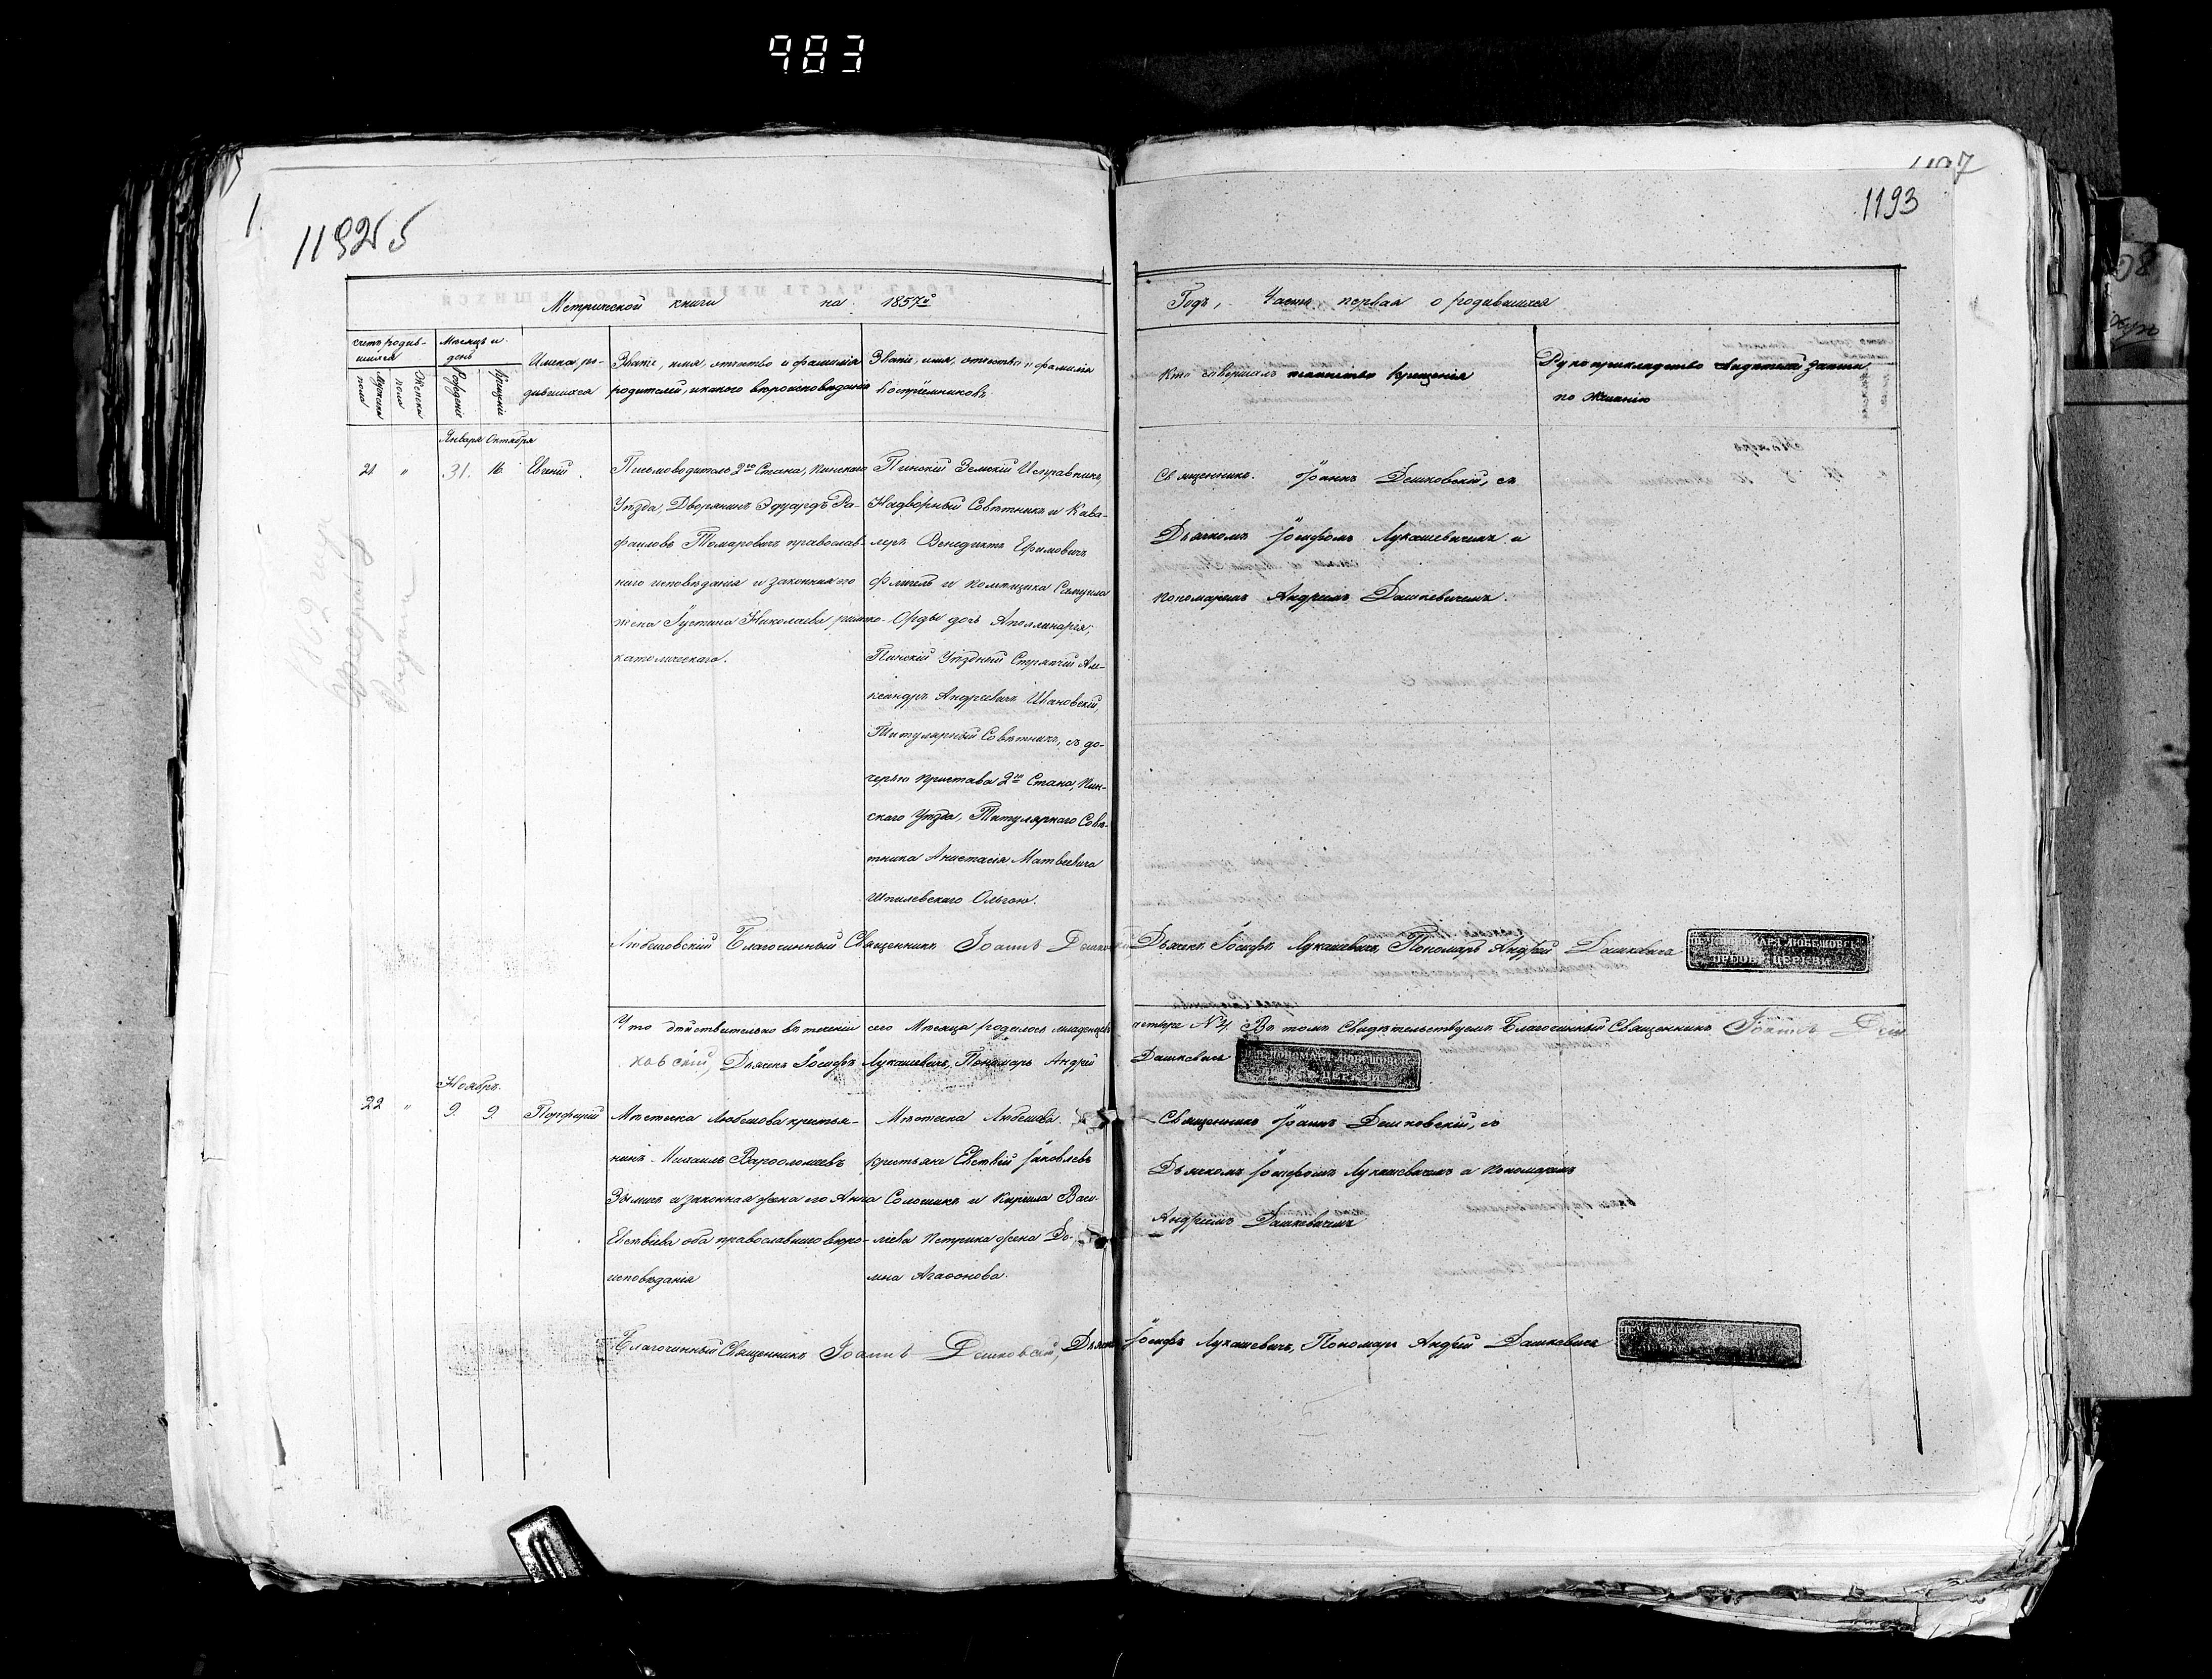 983
1.
1193
Метрической книги на 1857й
Годъ, Часть первая о родившихся
счетъ родив-
шихся
Мужеска пола
Женска пола
Мѣсяцъ и
день
Рожденіе
Крещеніе
Имена ро-
дившихся
Званіе, имя, отчество и фамилія
родителей, и какого вѣроисповѣданія
Званіе, имя, отчество и фамилія
Воспріемниковъ
Кто совершалъ таинство крещенія
Рукоприкладство свидѣтелей записи
по желанію
Января Октября
21 " 31. 16. Евгеній
Письмоводитель 2го Стана, Пинскаго
Уѣзда, Дворянинъ Эдуардъ Ра-
фаиловъ Томаровичъ православ-
наго исповѣданія и законная его
жена Іустина Николаева римско-
католическаго.
Пинскій Земскій Исправникъ,
Надворный Совѣтникъ и Кава-
леръ Венедиктъ Ефимовичъ
Флигель и помѣщика Самуила
Орды дочь Аполлинарія;
Пинскій Уѣздный Стряпчій Але-
ксандръ Андреевичъ Ивановскій,
Титулярный Совѣтникъ, съ до-
черью пристава 2го Стана, Пин-
скаго Уѣзда, Титулярнаго Совѣ-
тника Анастасія Матвеевича
Шпилевскаго Ольгою.
Священникъ Іоаннъ Дешковскій, съ
Дьячкомъ Іосифомъ Лукашевичемъ и
пономаремъ Андреемъ Дашкевичемъ.
Любешовскій Благочинный Священникъ Іоаннъ Дешковскій Дьячекъ Іосифъ Лукашевичъ, Пономарь Андрей Дашкевичъ
ПЕЧ. ПОНОМАРЯ ЛЮБЕШОВСК.
ПРЕОБР. ЦЕРКВИ
Что дѣйствительно въ теченіи сего Мѣсяца родилось младенцевъ четыре № 4. Въ томъ Свидѣтельствуемъ Благочинный Священникъ Іоаннъ Деш
ковскій, Дьячекъ Іосифъ Лукашевичъ, Пономарь Андрей Дашкевичъ
ПЕЧ. ПОНОМАРЯ ЛЮБЕШОВСК.
ПРЕОБР. ЦЕРКВИ
Ноябрь.
22 " 9. 9. Порфирій
Мѣстечка Любешова крестья-
нинъ Михаилъ Варѳоломеевъ
и законная жена его Анна
Евстафіева оба православнаго вѣро-
исповѣданія
Мѣстечка Любешова
крестьяне Евстафій Іаковлевъ
и Кирила Васи-
лева Петрика жена До-
мна Агаѳонова.
Священникъ Іоаннъ Дешковскій, съ
Дьячкомъ Іосифомъ Лукашевичемъ и пономаремъ
Андреемъ Дашкевичемъ
Благочинный Священникъ Іоаннъ Дешковскій, Дьячекъ Іосифъ Лукашевичъ, Пономарь Андрей Дашкевичъ